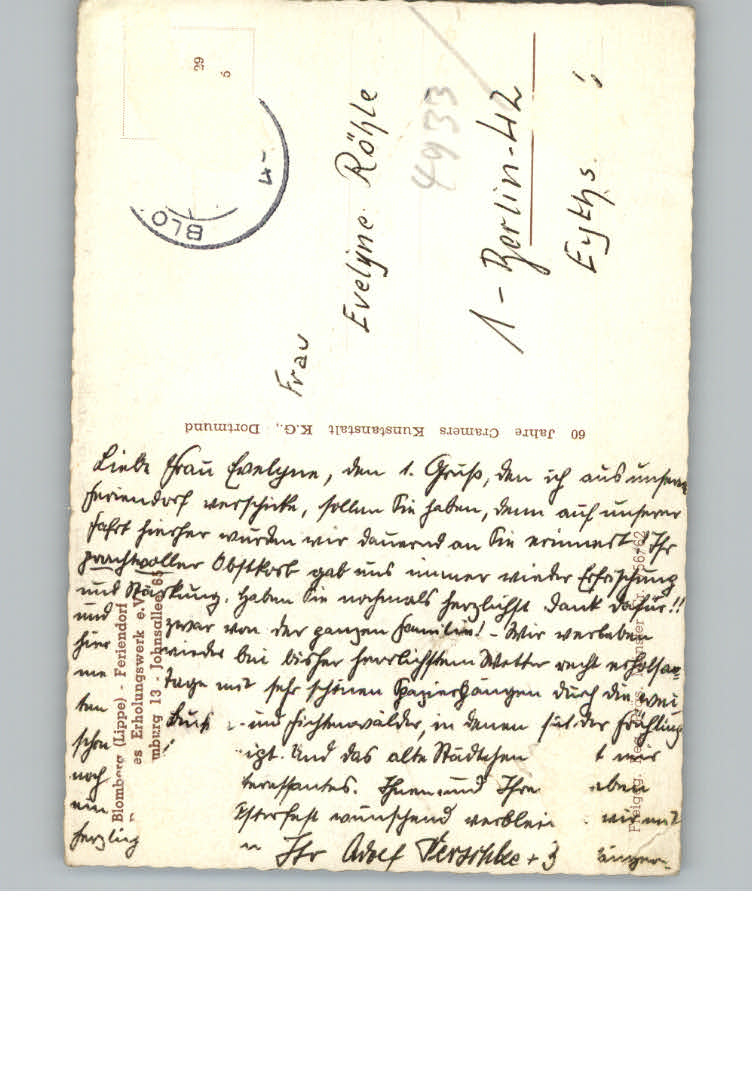 29
5
BLO
4933
Frau
Evelyne Röhle
1-Berlin-42
Eyths.
60 Jahre Cramers Kunstanstalt K.G., Dortmund
Liebe Frau Evelyne, den 1. Gruß, den ich aus unserm
Feriendorf verschicke, sollen Sie haben, denn auf unserer
Fahrt hierher wurden wir dauernd an Sie erinnert. Ihr
prachtvoller Obstkorb gab uns immer wieder Erfrischung
und Stärkung. Haben Sie nochmals herzlichst Dank dafür!!
und zwar von der ganzen Familie! - Wir verleben
hier wieder bei bisher herrlichstem Wetter recht erholsa-
me Tage mit sehr schönen Spaziergängen durch die wei
ten Buch - und Fichtenwälder, in denen sich der Frühling
schon zeigt. Und das alte Städtchen
noch Interessantes. Ihnen und Ihre
ein Osterfest wünschend verblei wir mit
herzlin Ihr Adolf Perschke + 3
Blomberg (Lippe) - Feriendorf
es Erholungswerk e.V.
mburg 13 - Johnsallee 68
Freigeg. Reg. Präs. Münster Nr.